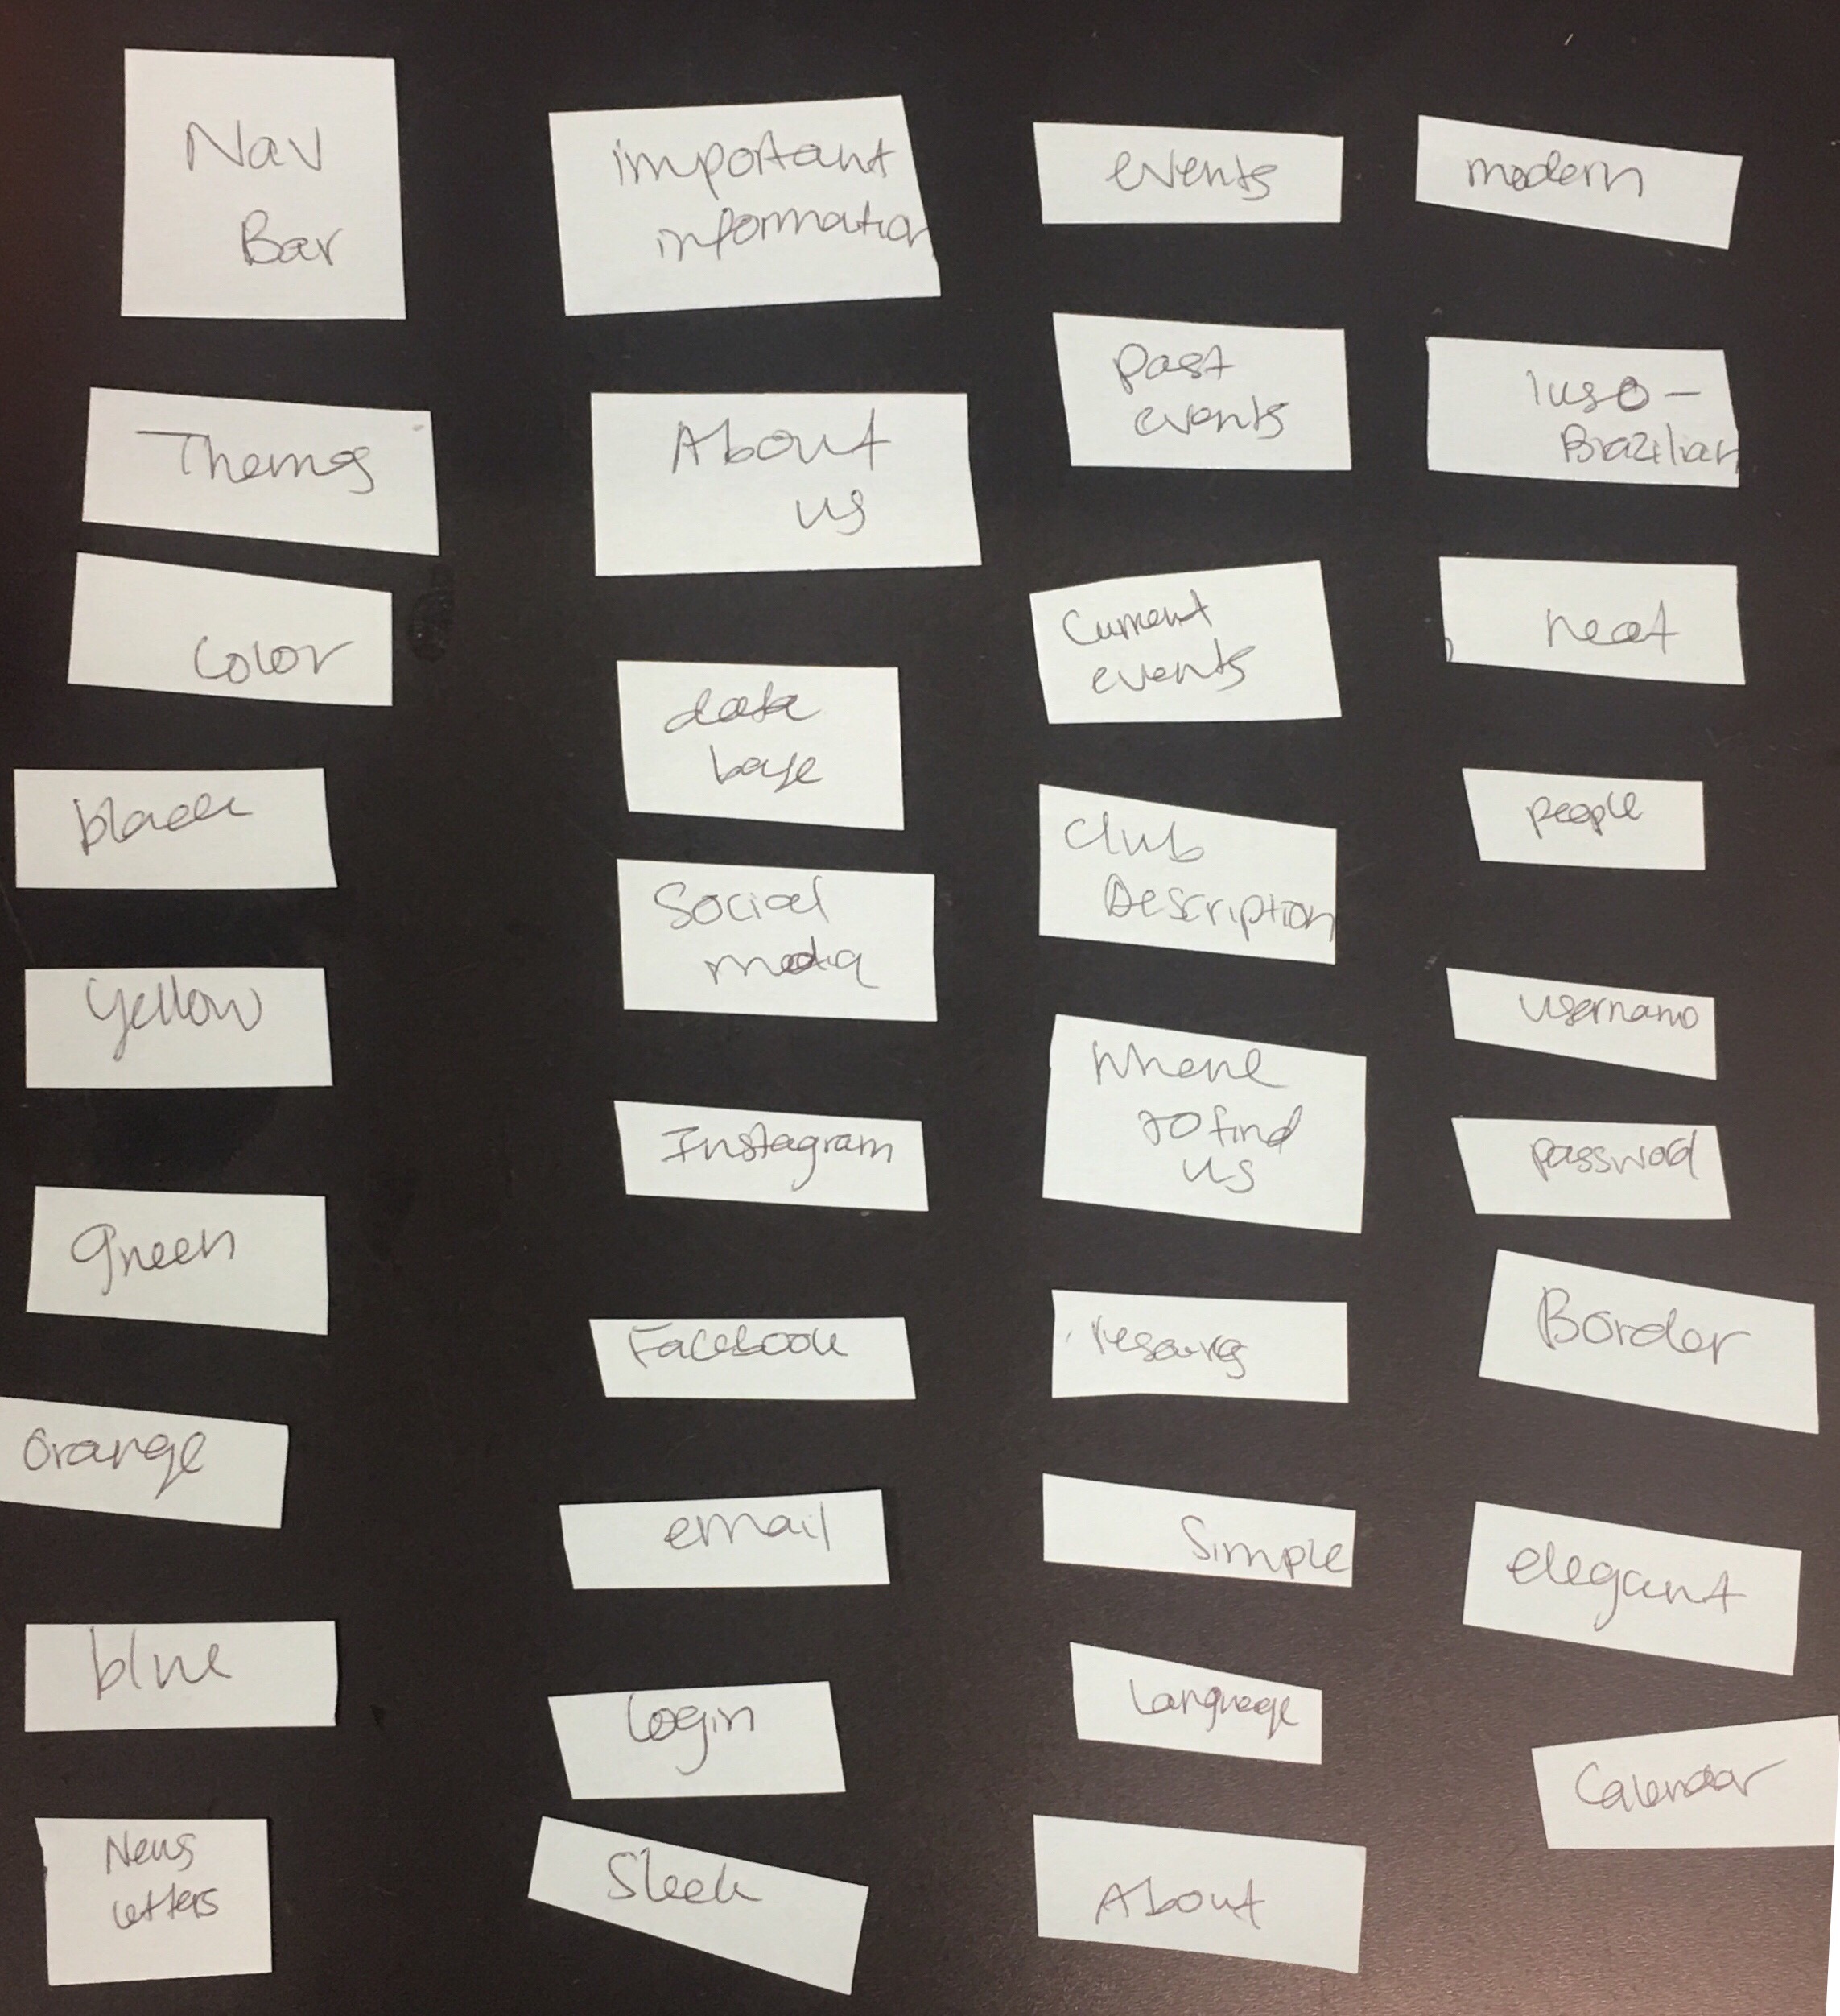 Nav
Bar
Themes
Color
black
yellow
green
orange
blue
News
letters
important
information
About
us
data
base
Social
media
Instagram
Facebook
email
login
Sleek
events
past
events
Current
events
Club
Description
Where
to find
us
Simple
Language
About
modern
luso-
Brazilian
neat
people
username
password
Border
elegant
Calendar